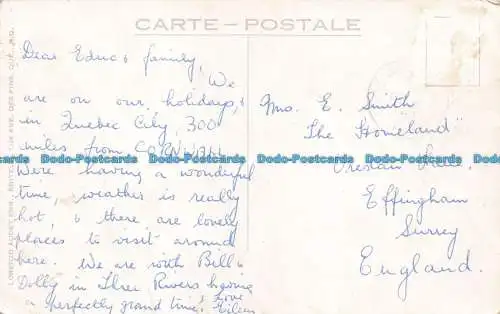 CARTE - POSTALE
Dear Edna & family,
We
are on our holidays, &
in Quebec City, 300
miles from CORNWALL
Were having a wonderful
time, weather is really
hot, & there are lovely
places to visit around
here. We are with Bill &
Dolly in Three Rivers having
a perfectly grand time. Love
Eileen
Mrs. E. Smith
"The Homeland"
Effingham
Surrey
England.
Dodo-Postcards Dodo-Postcards Dodo-Postcards Dodo-Postcards Dodo-Postcards